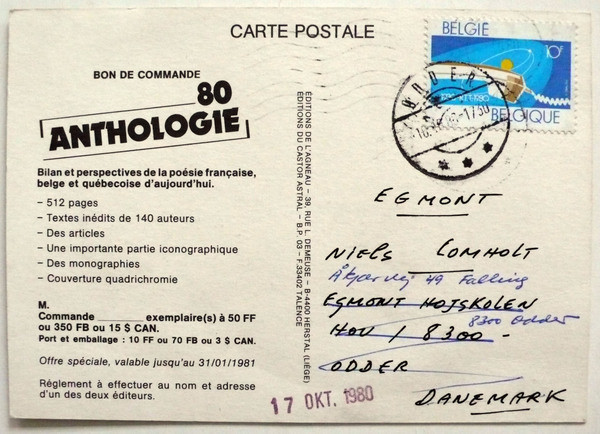 CARTE POSTALE
BELGIE
10F
1930-RTT-1980
BELGIQUE
ODDER
BON DE COMMANDE
80
ANTHOLOGIE
Bilan et perspectives de la poésie française,
belge et québecoise d'aujourd'hui.
- 512 pages
- Textes inédits de 140 auteurs
- Des articles
- Une importante partie iconographique
- Des monographies
- Couverture quadrichromie
M.
Commande ________ exemplaire(s) à 50 FF
ou 350 FB ou 15 $ CAN.
Port et emballage : 10 FF ou 70 FB ou 3 $ CAN.
Offre spéciale, valable jusqu'au 31/01/1981
Réglement à effectuer au nom et adresse
d'un des deux éditeurs.
ÉDITIONS DE L'AGNEAU - 39, RUE L. DEMEUSE - B-4400 HERSTAL (LIÈGE)
ÉDITIONS DU CASTOR ASTRAL - B.P. 03 - F.33402 TALENCE
EGMONT
NIELS LOMHOLT
49 Falling
EGMONT HOJSKOLEN
8300 Odder
HOV / 8300 -
ODDER
DANEMARK
17 OKT. 1980